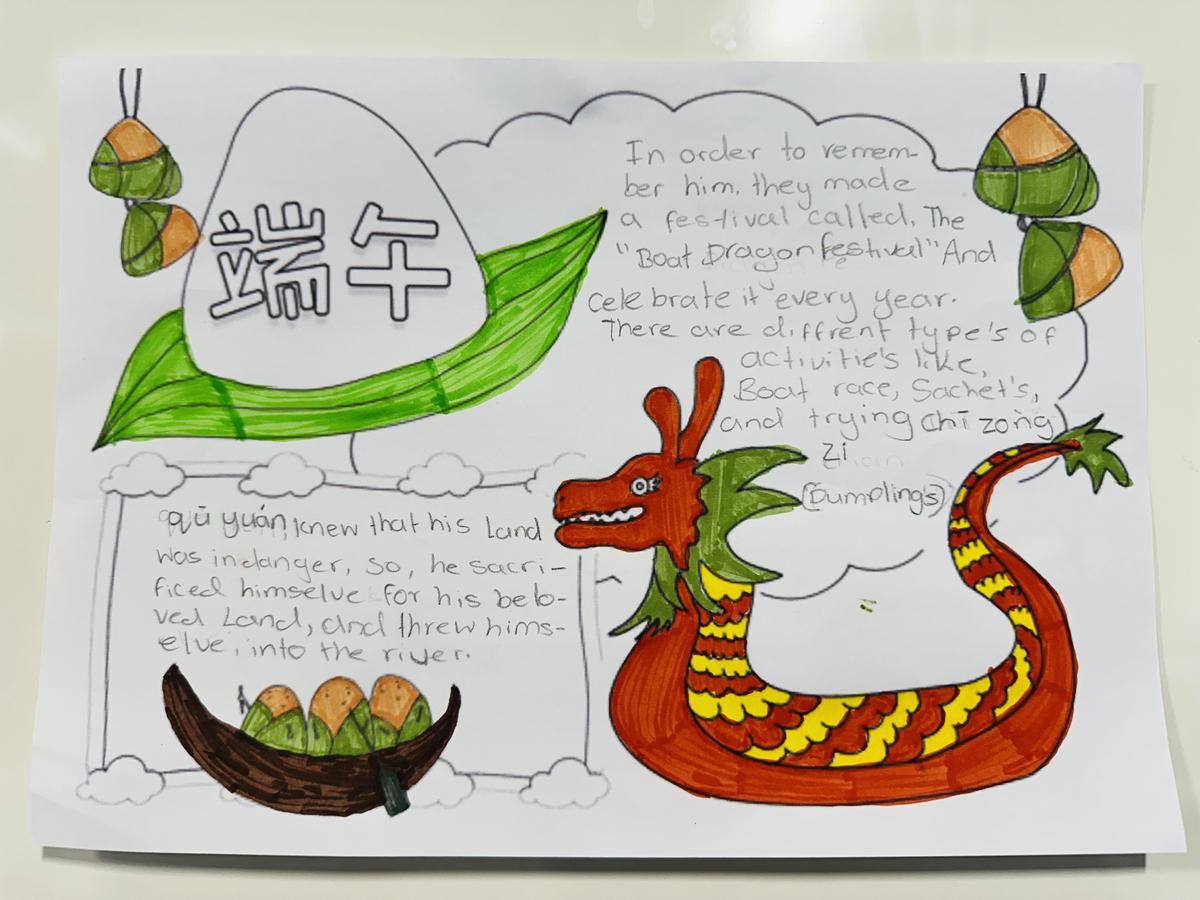 端午
qū yuán, knew that his Land
was in danger, so, he sacri-
ficed himselve for his belo-
ved Land, and threw hims-
elve, into the river.
In order to remem-
ber him, they made
a festival called, The
"Boat Dragon festival" And
celebrate it every year.
There are diffrent type's of
activitie's like,
Boat race, Sachet's,
and trying chī zòng
Zi
(Dumpling's)